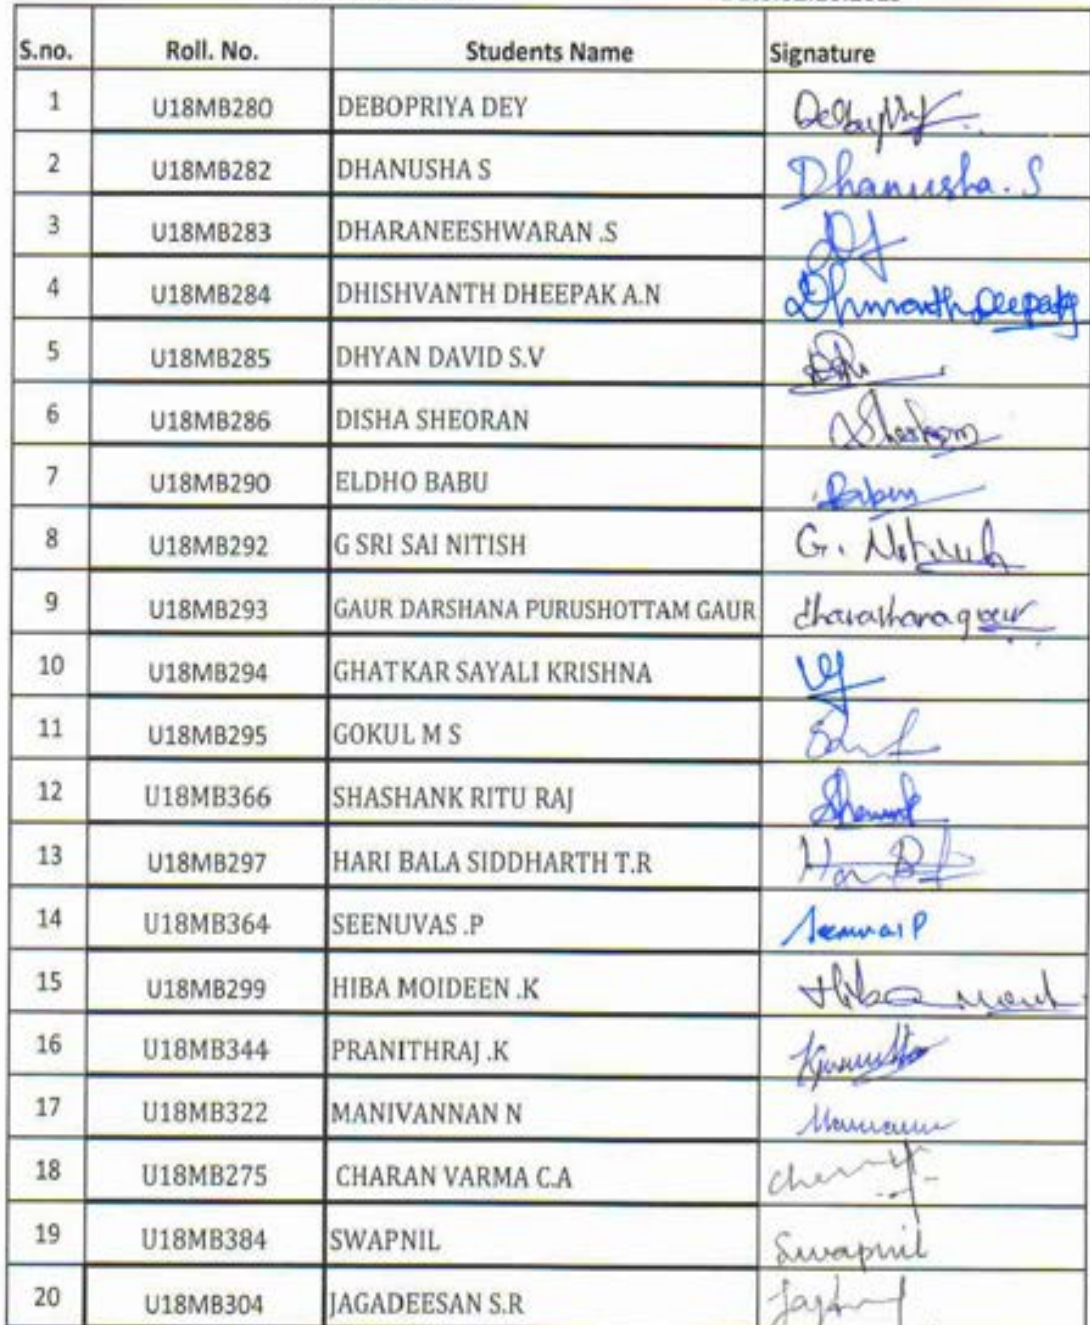 S.no. Roll. No. Students Name Signature
1 U18MB280 DEBOPRIYA DEY
2 U18MB282 DHANUSHA S Dhanusha. S
3 U18MB283 DHARANEESHWARAN .S
4 U18MB284 DHISHVANTH DHEEPAK A.N
5 U18MB285 DHYAN DAVID S.V
6 U18MB286 DISHA SHEORAN
7 U18MB290 ELDHO BABU
8 U18MB292 G SRI SAI NITISH G.
9 U18MB293 GAUR DARSHANA PURUSHOTTAM GAUR
10 U18MB294 GHATKAR SAYALI KRISHNA
11 U18MB295 GOKUL M S
12 U18MB366 SHASHANK RITU RAJ
13 U18MB297 HARI BALA SIDDHARTH T.R
14 U18MB364 SEENUVAS .P
15 U18MB299 HIBA MOIDEEN .K Hiba
16 U18MB344 PRANITHRAJ .K
17 U18MB322 MANIVANNAN N
18 U18MB275 CHARAN VARMA C.A
19 U18MB384 SWAPNIL Swapnil
20 U18MB304 JAGADEESAN S.R